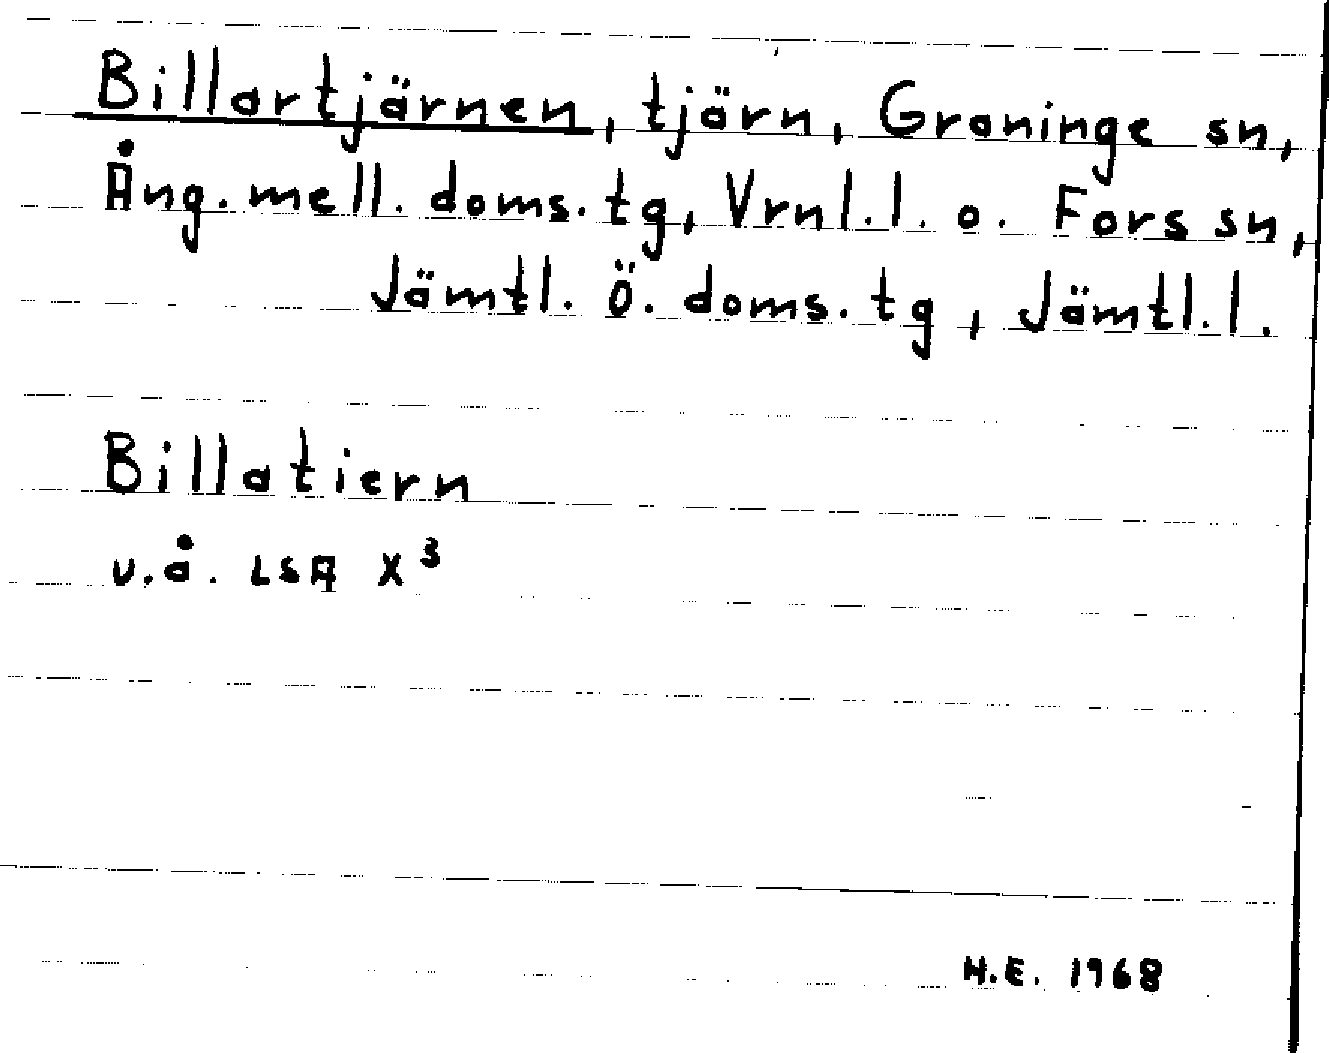 Billartjärnen, tjärn, Graninge sn,
Ång. mell. doms. tg, Vrnl. l. o. Fors sn,
Jämtl. Ö. doms. tg, Jämtl. l.
Billatiern
u.å. LSA X³
H.E. 1968